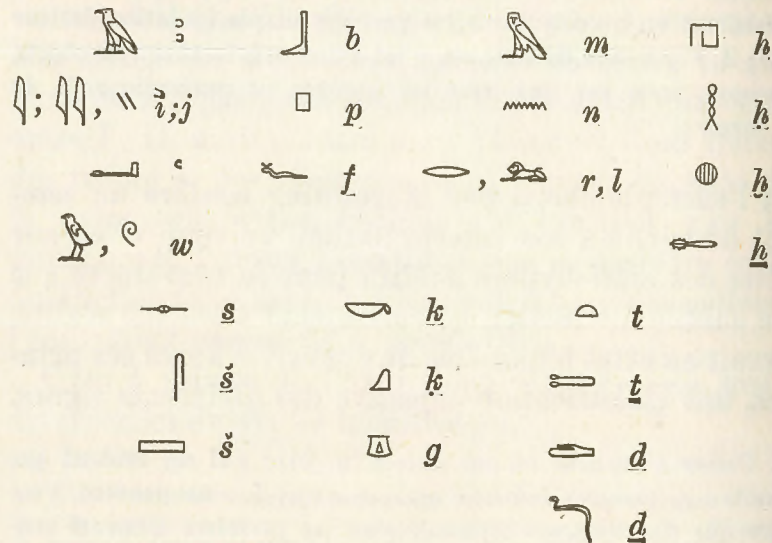 𓄿 ꜣ 𓃀 b 𓅓 m 𓉔 h
𓇋; 𓇋𓇋, 𓏭 ỉ;j 𓊪 p 𓈖 n 𓎛 ḥ
𓂝 ꜥ 𓆑 f 𓂋, 𓃭 r, l 𓐍 ḫ
𓅱, 𓏲 w 𓄡 ẖ
𓊃 s 𓎡 k 𓏏 t
𓋴 š 𓈎 ḳ 𓍿 ṯ
𓈙 š 𓎼 g 𓂧 d
𓆓 ḏ